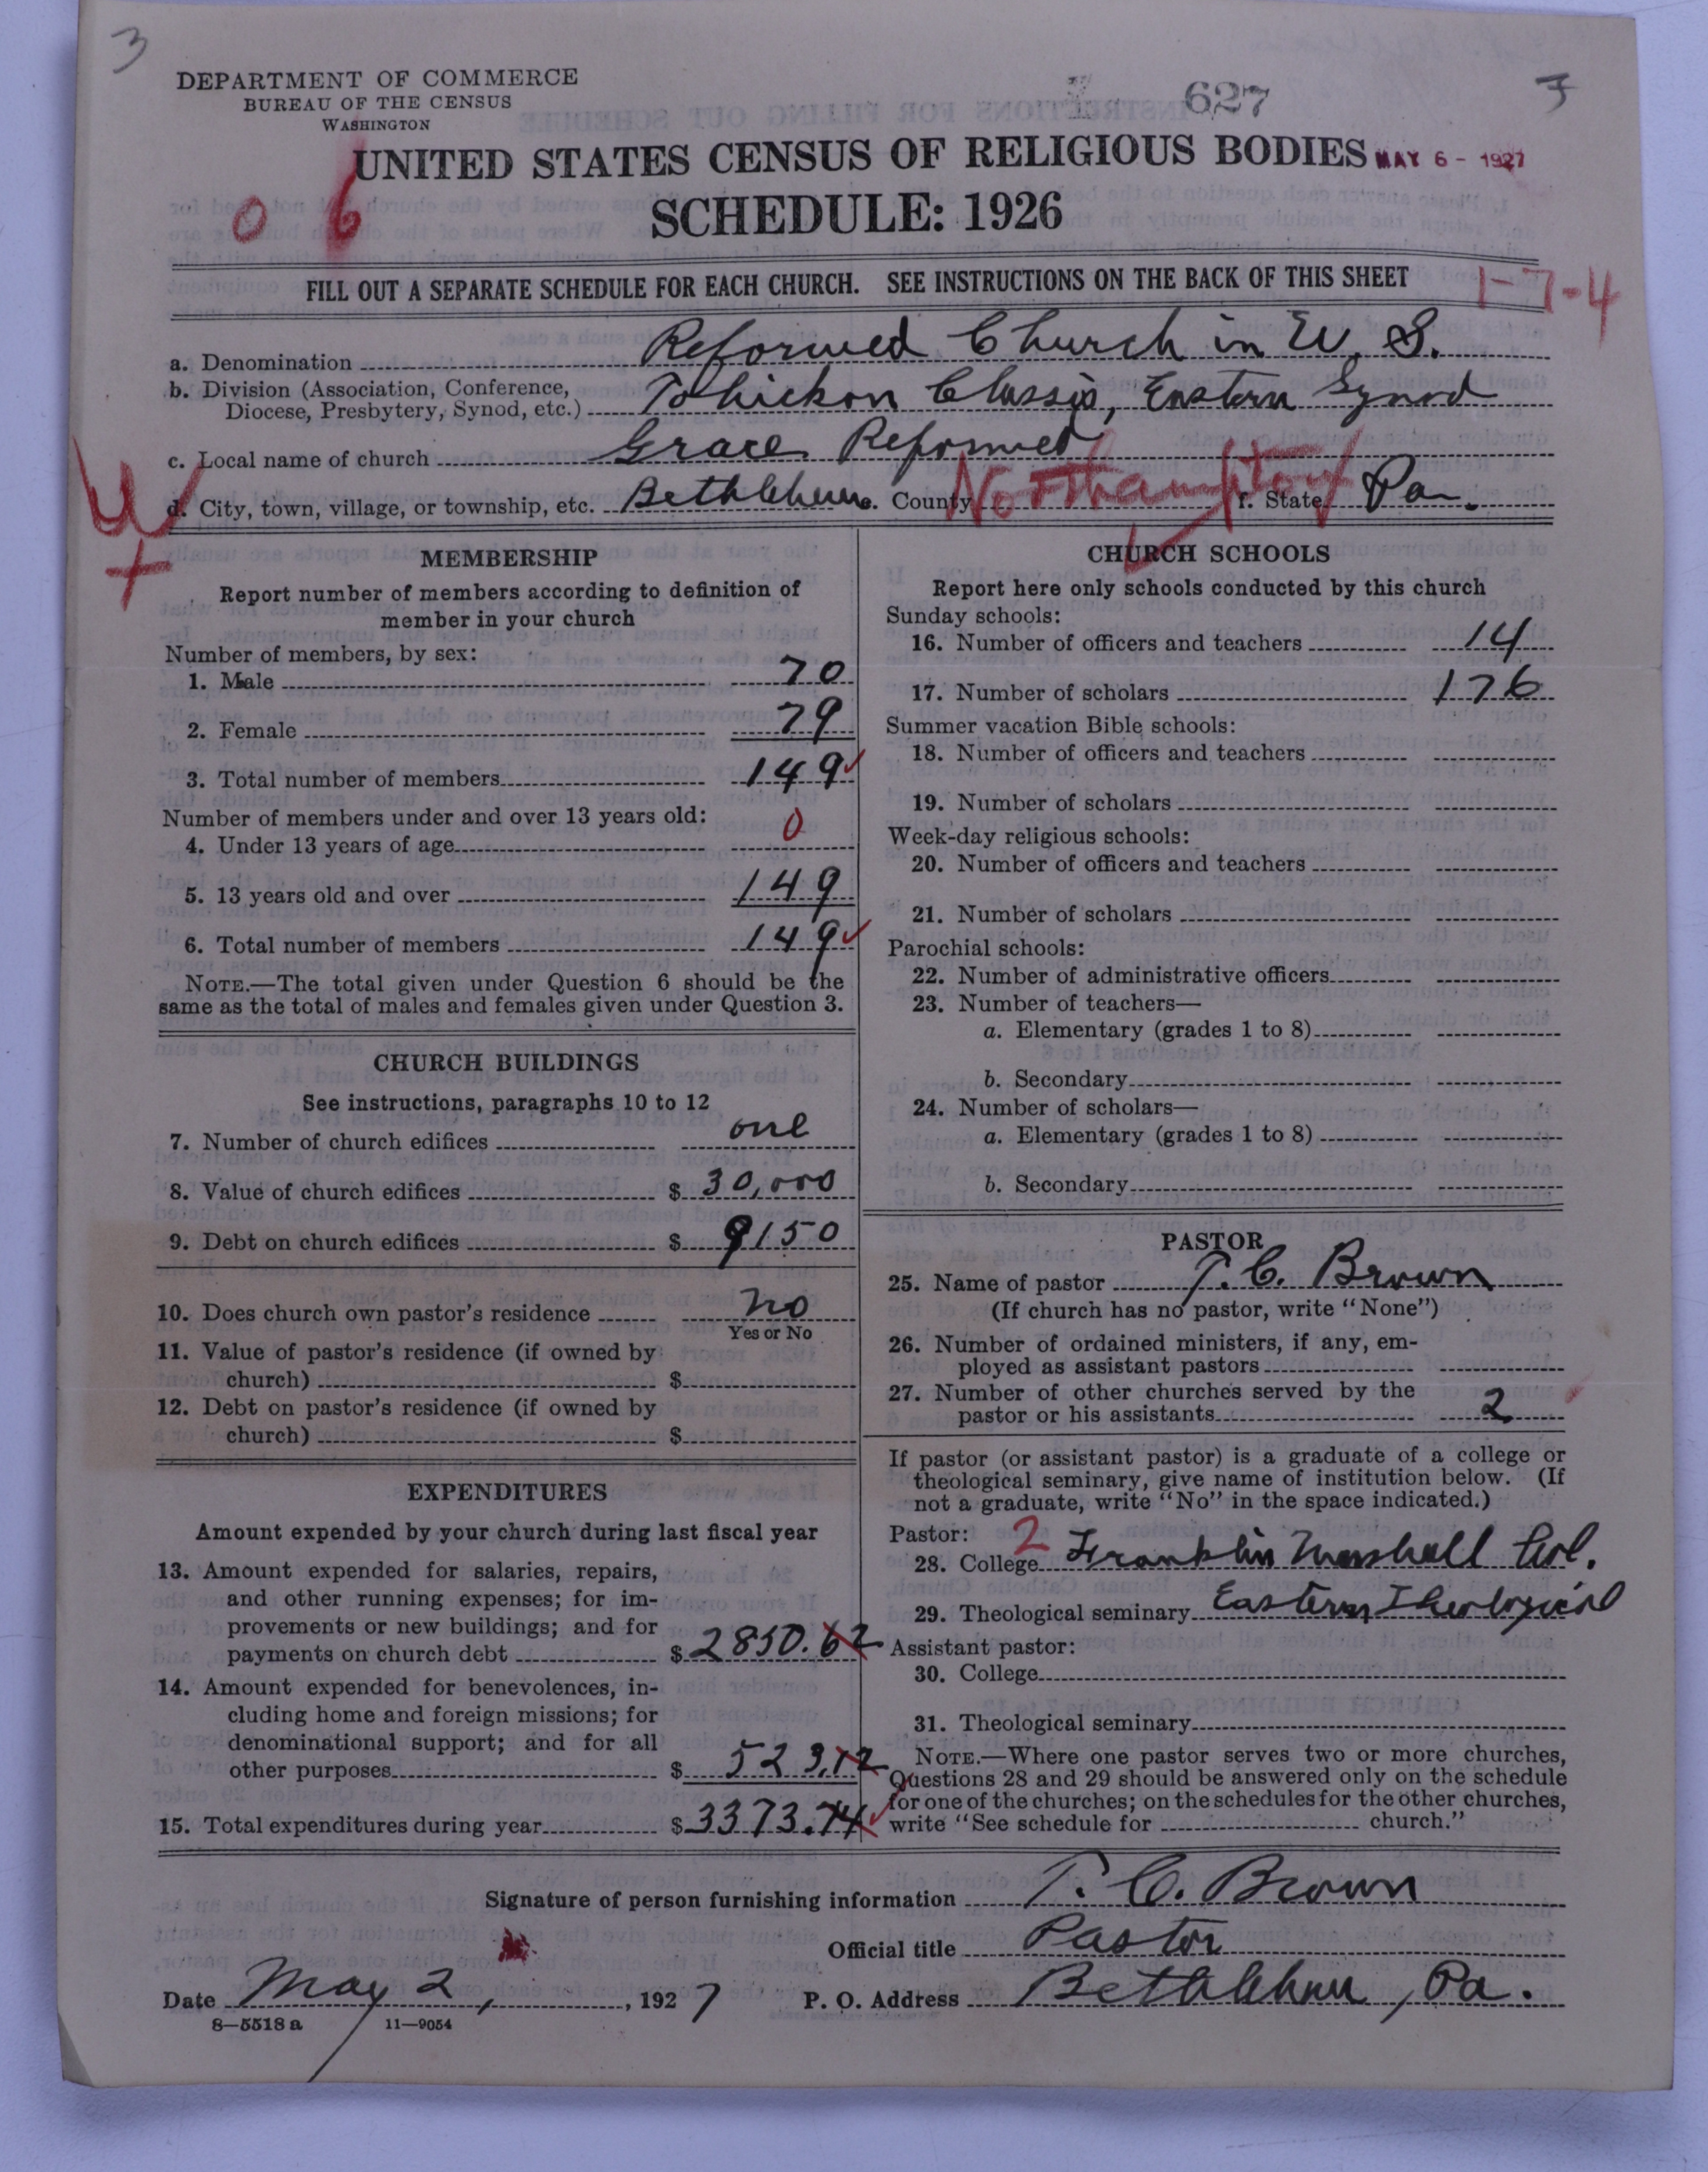 3
DEPARTMENT OF COMMERCE
BUREAU OF THE CENSUS
WASHINGTON
627
UNITED STATES CENSUS OF RELIGIOUS BODIES MAY 6 - 1927
0 6 SCHEDULE: 1926
FILL OUT A SEPARATE SCHEDULE FOR EACH CHURCH. SEE INSTRUCTIONS ON THE BACK OF THIS SHEET 1-7-4
a. Denomination Reformed Church in U. S.
b. Division (Association, Conference,
Diocese, Presbytery, Synod, etc.) Tohickon Classis, Eastern Synod
c. Local name of church Grace Reformed
d. City, town, village, or township, etc. Bethlehem e. County Northampton f. State Pa.
MEMBERSHIP
Report number of members according to definition of
member in your church
Number of members, by sex:
1. Male 70
2. Female 79
3. Total number of members 149
Number of members under and over 13 years old:
4. Under 13 years of age 0
5. 13 years old and over 149
6. Total number of members 149
NOTE.—The total given under Question 6 should be the
same as the total of males and females given under Question 3.
CHURCH BUILDINGS
See instructions, paragraphs 10 to 12
7. Number of church edifices one
8. Value of church edifices $ 30,000
9. Debt on church edifices $ 9150
10. Does church own pastor's residence no
Yes or No
11. Value of pastor's residence (if owned by
church) $
12. Debt on pastor's residence (if owned by
church) $
EXPENDITURES
Amount expended by your church during last fiscal year
13. Amount expended for salaries, repairs,
and other running expenses; for im-
provements or new buildings; and for
payments on church debt $ 2850.62
14. Amount expended for benevolences, in-
cluding home and foreign missions; for
denominational support; and for all
other purposes $ 523.12
15. Total expenditures during year $ 3373.74
CHURCH SCHOOLS
Report here only schools conducted by this church
Sunday schools:
16. Number of officers and teachers 14
17. Number of scholars 176
Summer vacation Bible schools:
18. Number of officers and teachers
19. Number of scholars
Week-day religious schools:
20. Number of officers and teachers
21. Number of scholars
Parochial schools:
22. Number of administrative officers
23. Number of teachers—
a. Elementary (grades 1 to 8)
b. Secondary
24. Number of scholars—
a. Elementary (grades 1 to 8)
b. Secondary
PASTOR
25. Name of pastor T. C. Brown
(If church has no pastor, write "None")
26. Number of ordained ministers, if any, em-
ployed as assistant pastors
27. Number of other churches served by the
pastor or his assistants 2
If pastor (or assistant pastor) is a graduate of a college or
theological seminary, give name of institution below. (If
not a graduate, write "No" in the space indicated.)
Pastor: 2
28. College Franklin Marshall Col.
29. Theological seminary Eastern Theological
Assistant pastor:
30. College
31. Theological seminary
NOTE.—Where one pastor serves two or more churches,
Questions 28 and 29 should be answered only on the schedule
for one of the churches; on the schedules for the other churches,
write "See schedule for church."
Signature of person furnishing information T. C. Brown
Official title Pastor
Date May 2, 1927 P. O. Address Bethlehem, Pa.
8—5518 a 11—9054